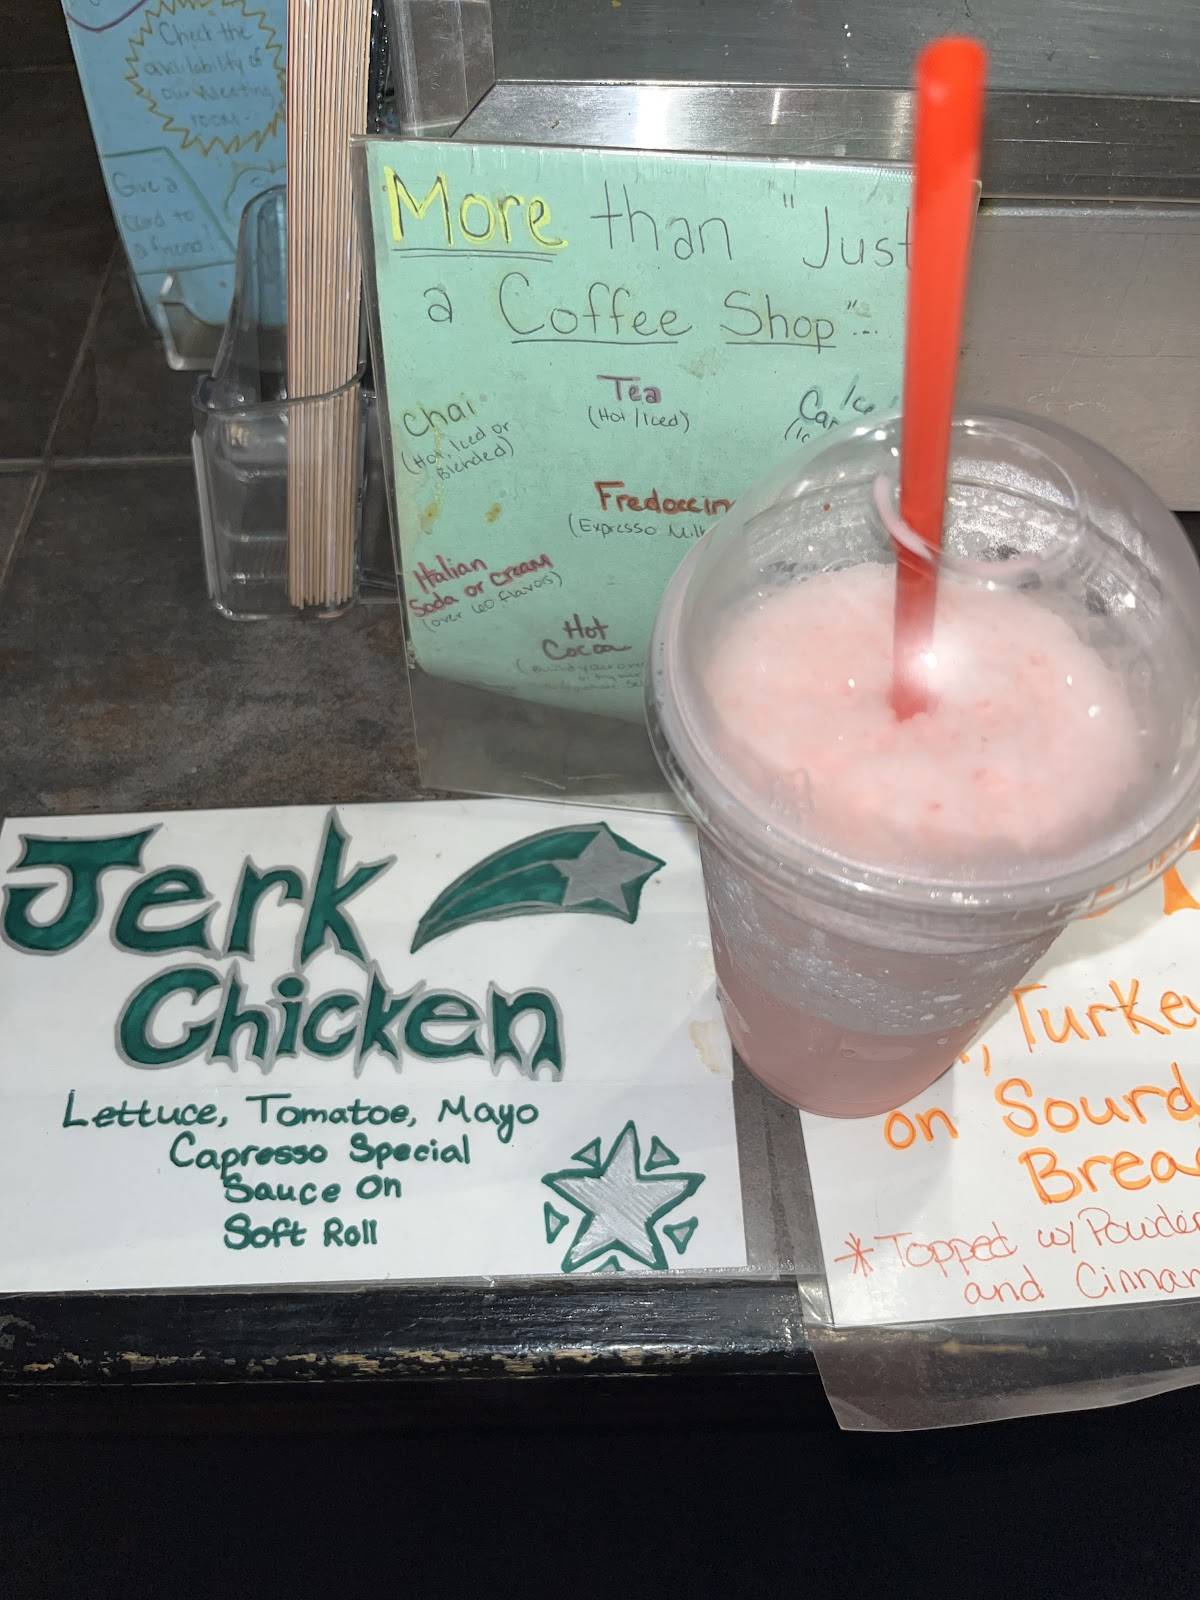 Check the
availability of
our meeting
room.
Give a
card to
a friend!
More than "Just
a Coffee Shop"...
Chai
(Hot, Iced or
Blended)
Tea
(Hot/Iced)
Ice
Car
(Ic
Fredoccin
(Expresso Milk
Italian
Soda or Cream
(over 60 flavors)
Hot
Cocoa
(Build your own
Jerk
Chicken
Lettuce, Tomatoe, Mayo
Capresso Special
Sauce On
Soft Roll
, Turkey
on Sourd
Brea
*Topped w/ Powder
and Cinnam